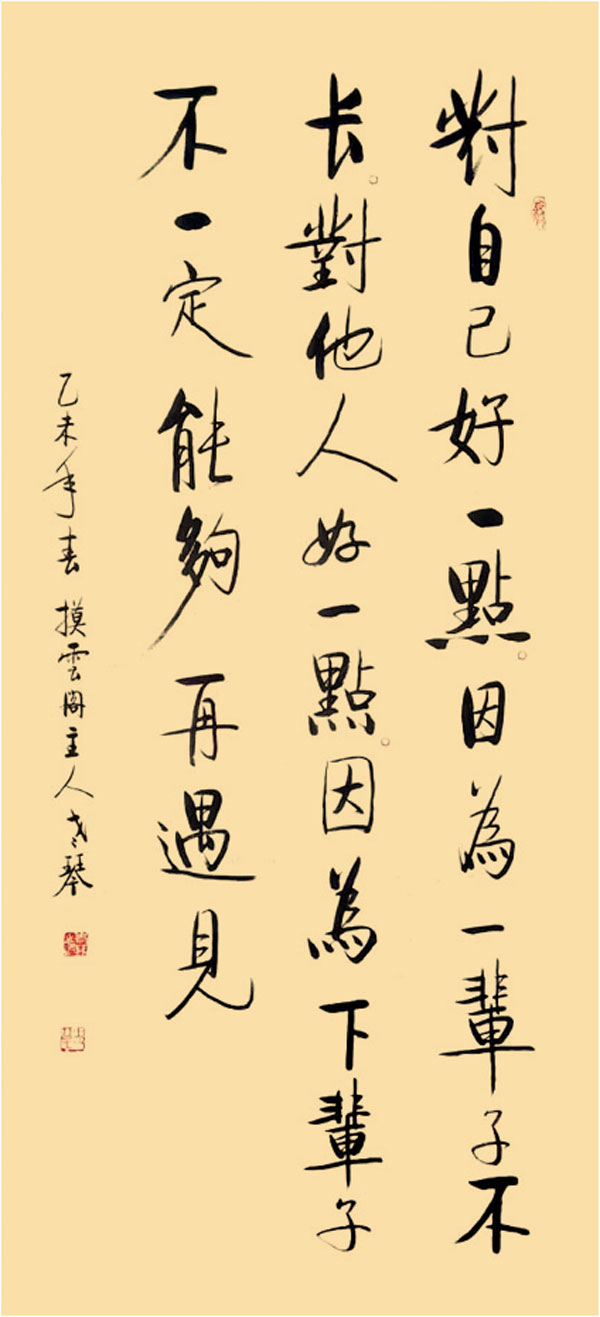 對自己好一點。因為一輩子不
长。對他人好一點。因為下輩子
不一定能夠再遇見
乙未年春 摸雲阁主人琴